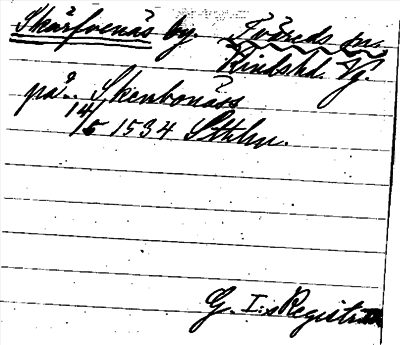 Skärfvenäs by. Tväreds sn.
Kindshd Vg.
på.. Skenbonäss
14/5 1534 Sthlm.
G. I:s Registr